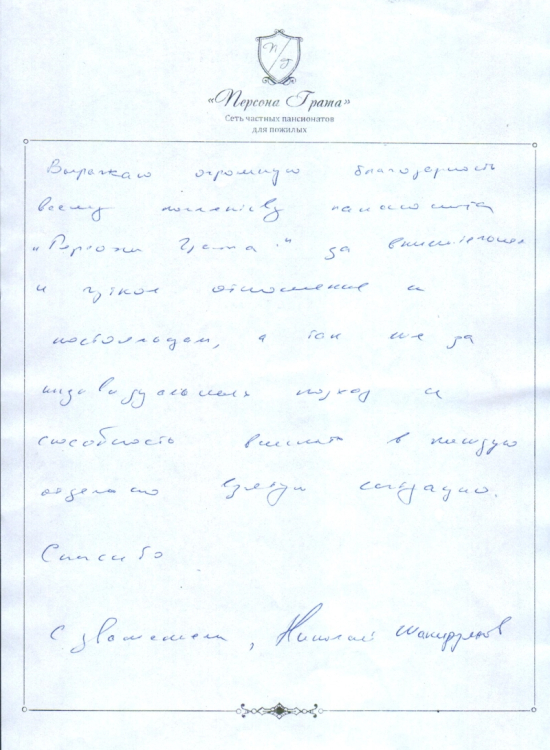 «Персона Грата»
Сеть частных пансионатов
для пожилых
Выражаю огромную благодарность
всему коллективу пансионата
"Персона Грата" за внимательное
и чуткое отношение к
постояльцам, а так же за
индивидуальный подход и
способность вникать в каждую
отдельно взятую ситуацию.
Спасибо
С уважением, Николай